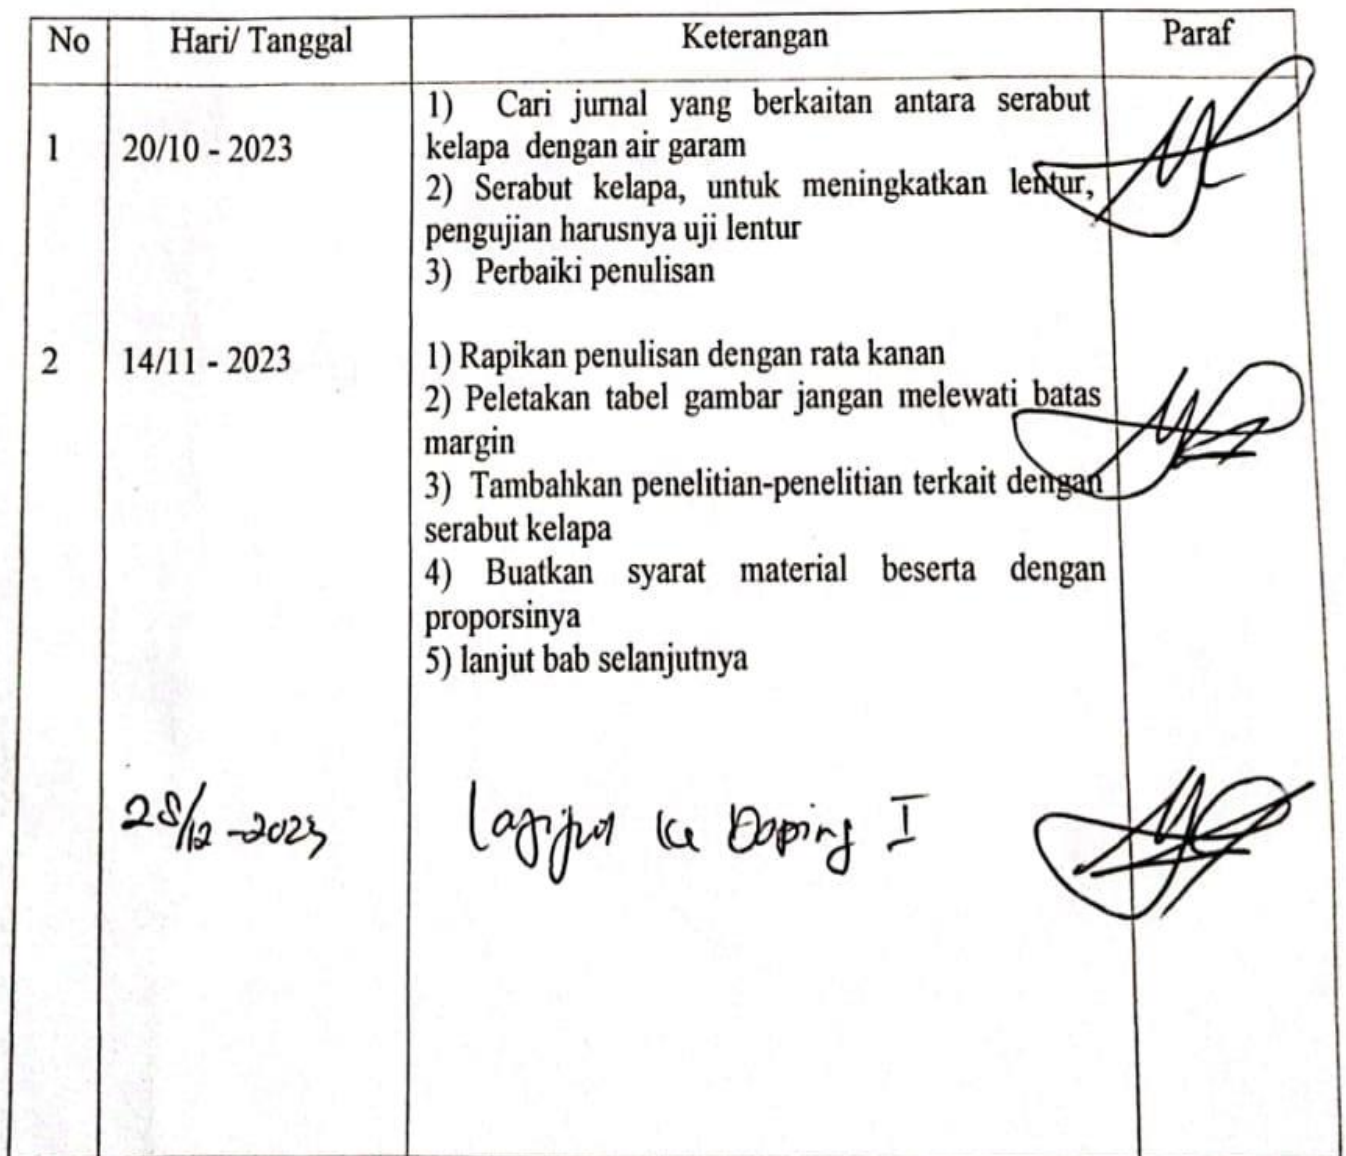 No Hari/ Tanggal Keterangan Paraf
1) Cari jurnal yang berkaitan antara serabut
1 20/10 - 2023 kelapa dengan air garam
2) Serabut kelapa, untuk meningkatkan lentur,
pengujian harusnya uji lentur
3) Perbaiki penulisan
2 14/11 - 2023 1) Rapikan penulisan dengan rata kanan
2) Peletakan tabel gambar jangan melewati batas
margin
3) Tambahkan penelitian-penelitian terkait dengan
serabut kelapa
4) Buatkan syarat material beserta dengan
proporsinya
5) lanjut bab selanjutnya
28/12 - 2023 ke Doping I